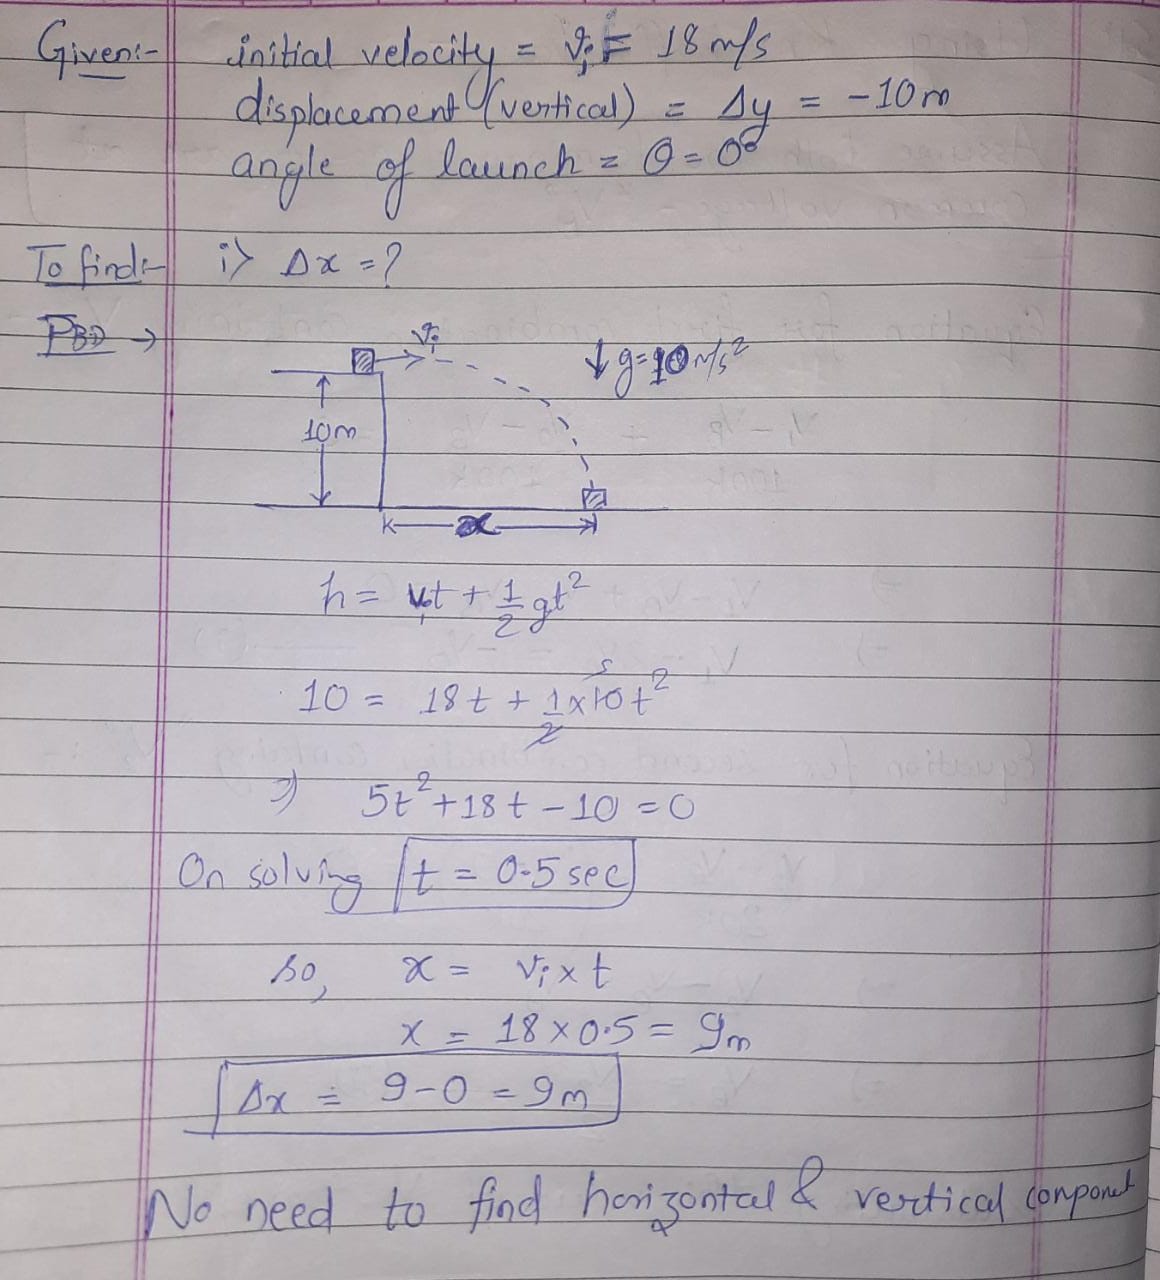 Given:- initial velocity = vᵢ = 18 m/s
displacement (vertical) = Δy = -10m
angle of launch = θ = 0°
To find:- i> Δx = ?
FBD →
vᵢ
↓ g=10 m/s²
10m
x
h = vᵢt + 1/2 gt²
10 = 18t + 1/2 x 10 t²
5
⇒ 5t² + 18t - 10 = 0
On solving t = 0.5 sec
so, x = vᵢ x t
x = 18 x 0.5 = 9m
Δx = 9-0 = 9m
No need to find horizontal & vertical componet